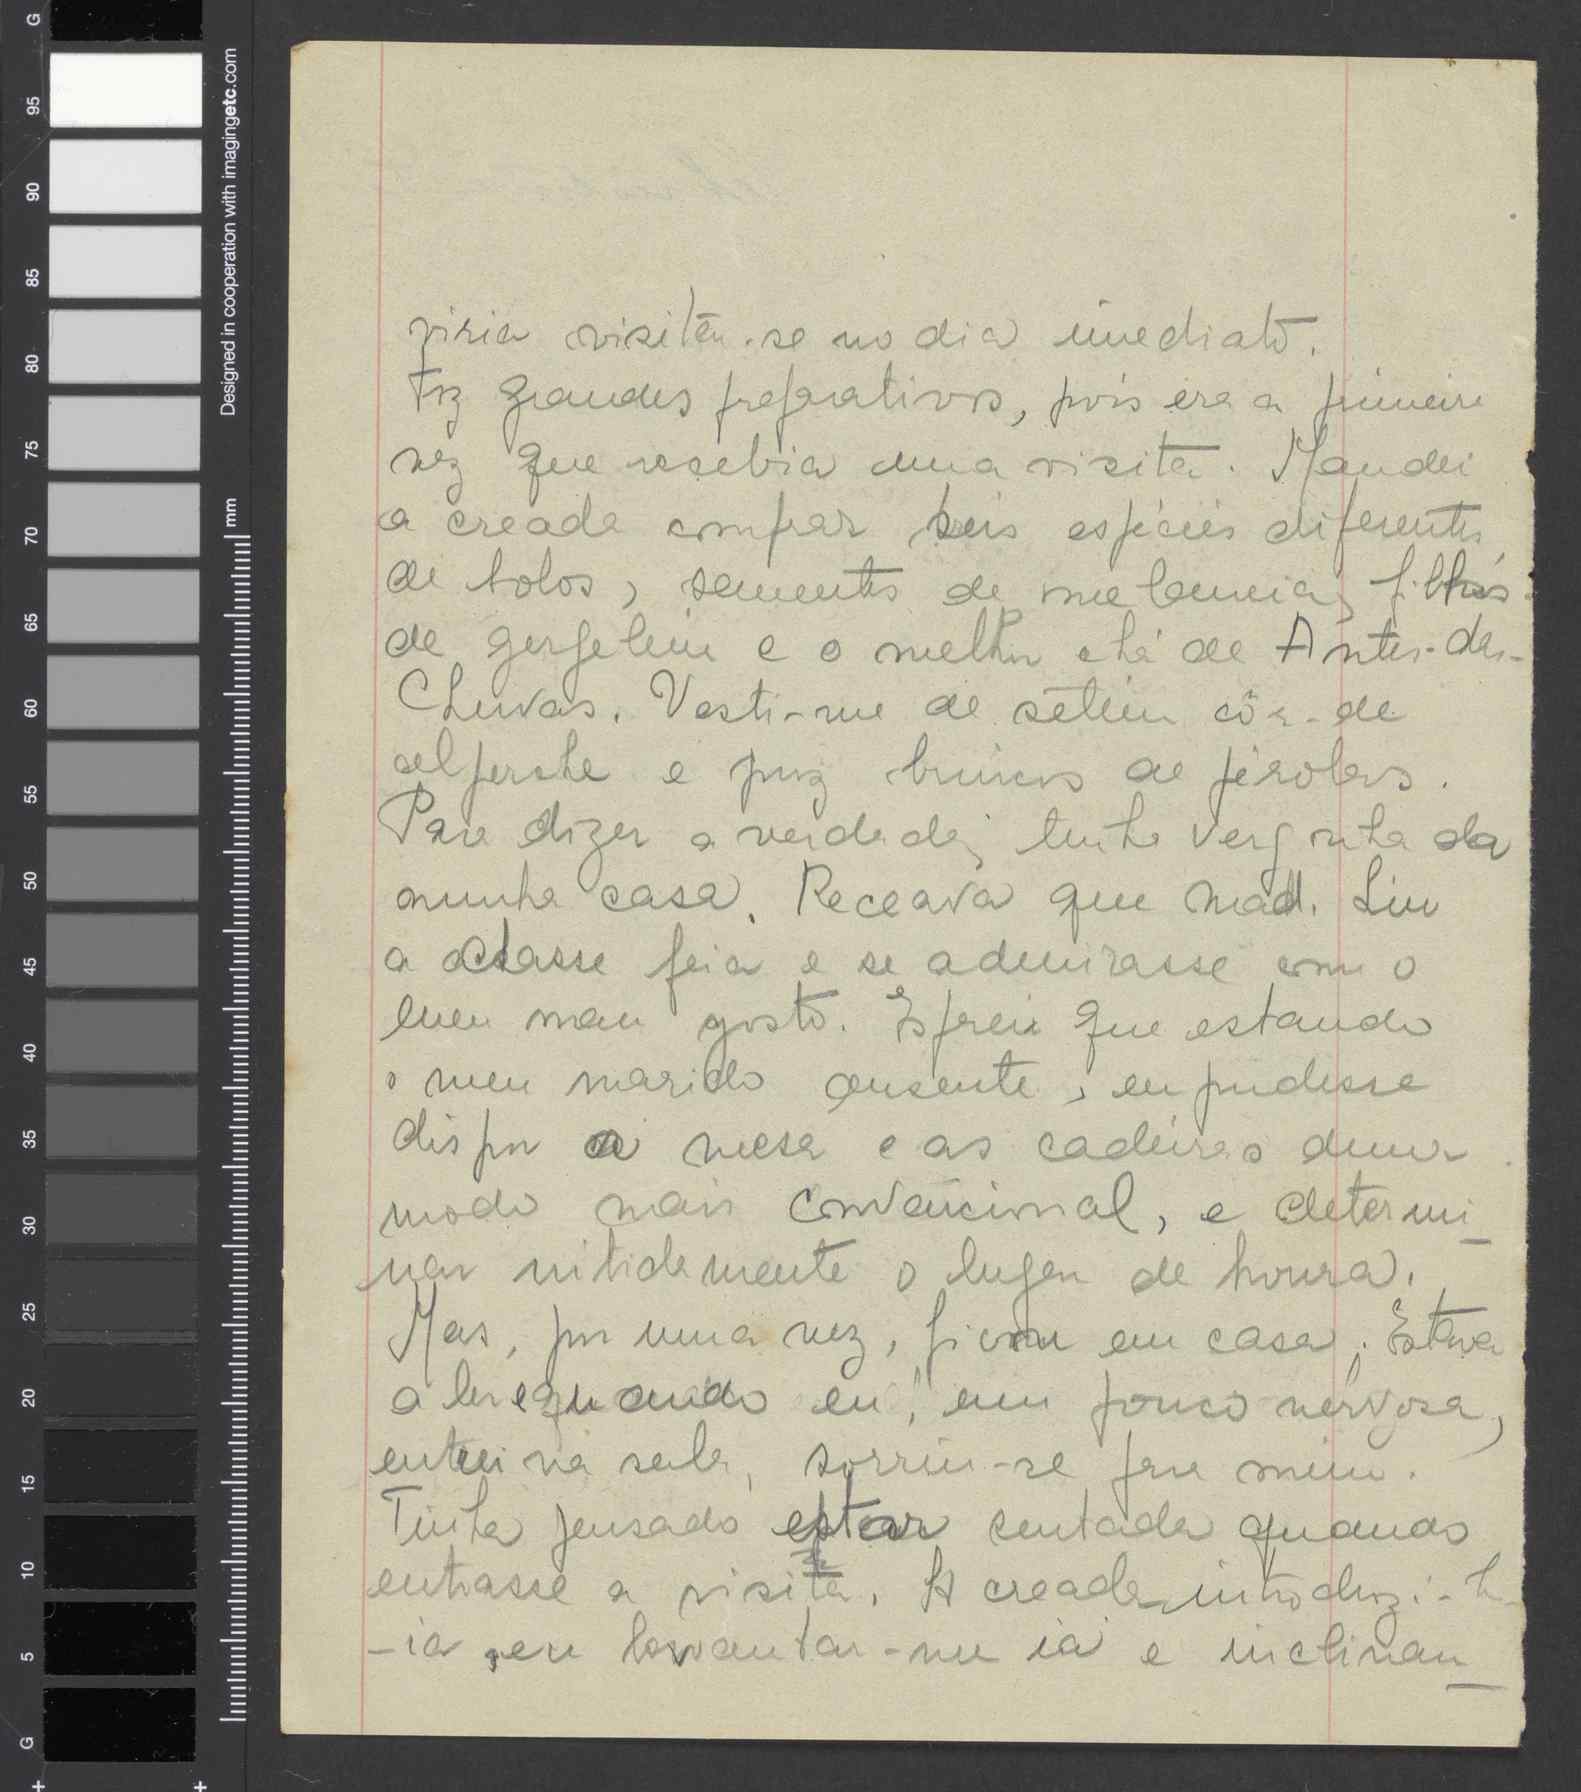 G
95
90
85
80
75
70
65
60
55
50
45
40
35
30
25
20
15
10
5
G
Designed in cooperation with imagingetc.com
mm
viria visitar-se no dia imediato.
Fiz grandes preparativos, pois era a primeira
vez que recebia uma visita. Mandei
a creada comprar seis espécies diferentes
de bolos, sementes de melancia, filhós
de gergelim e o melhor chá de Antes-das-
Chuvas. Vesti-me de setim côr-de
alperche e puz brincos de pérolas.
Para dizer a verdade, tinha vergonha da
minha casa. Receava que Mad. Liu
a achasse feia e se admirasse com o
meu mau gosto. Esperei que estando
o meu marido ausente, eu pudesse
dispor a mesa e as cadeiras dum
modo mais convencional, e determi_
nar nitidamente o lugar de honra.
Mas, por uma vez, ficou em casa. Estava
a ler e quando eu, um pouco nervosa,
entrei na sala, sorriu-se para mim.
Tinha pensado estar sentada quando
entrasse a visita. A creada introduzi-la-
-ia, eu levantar-me ia e inclinan_